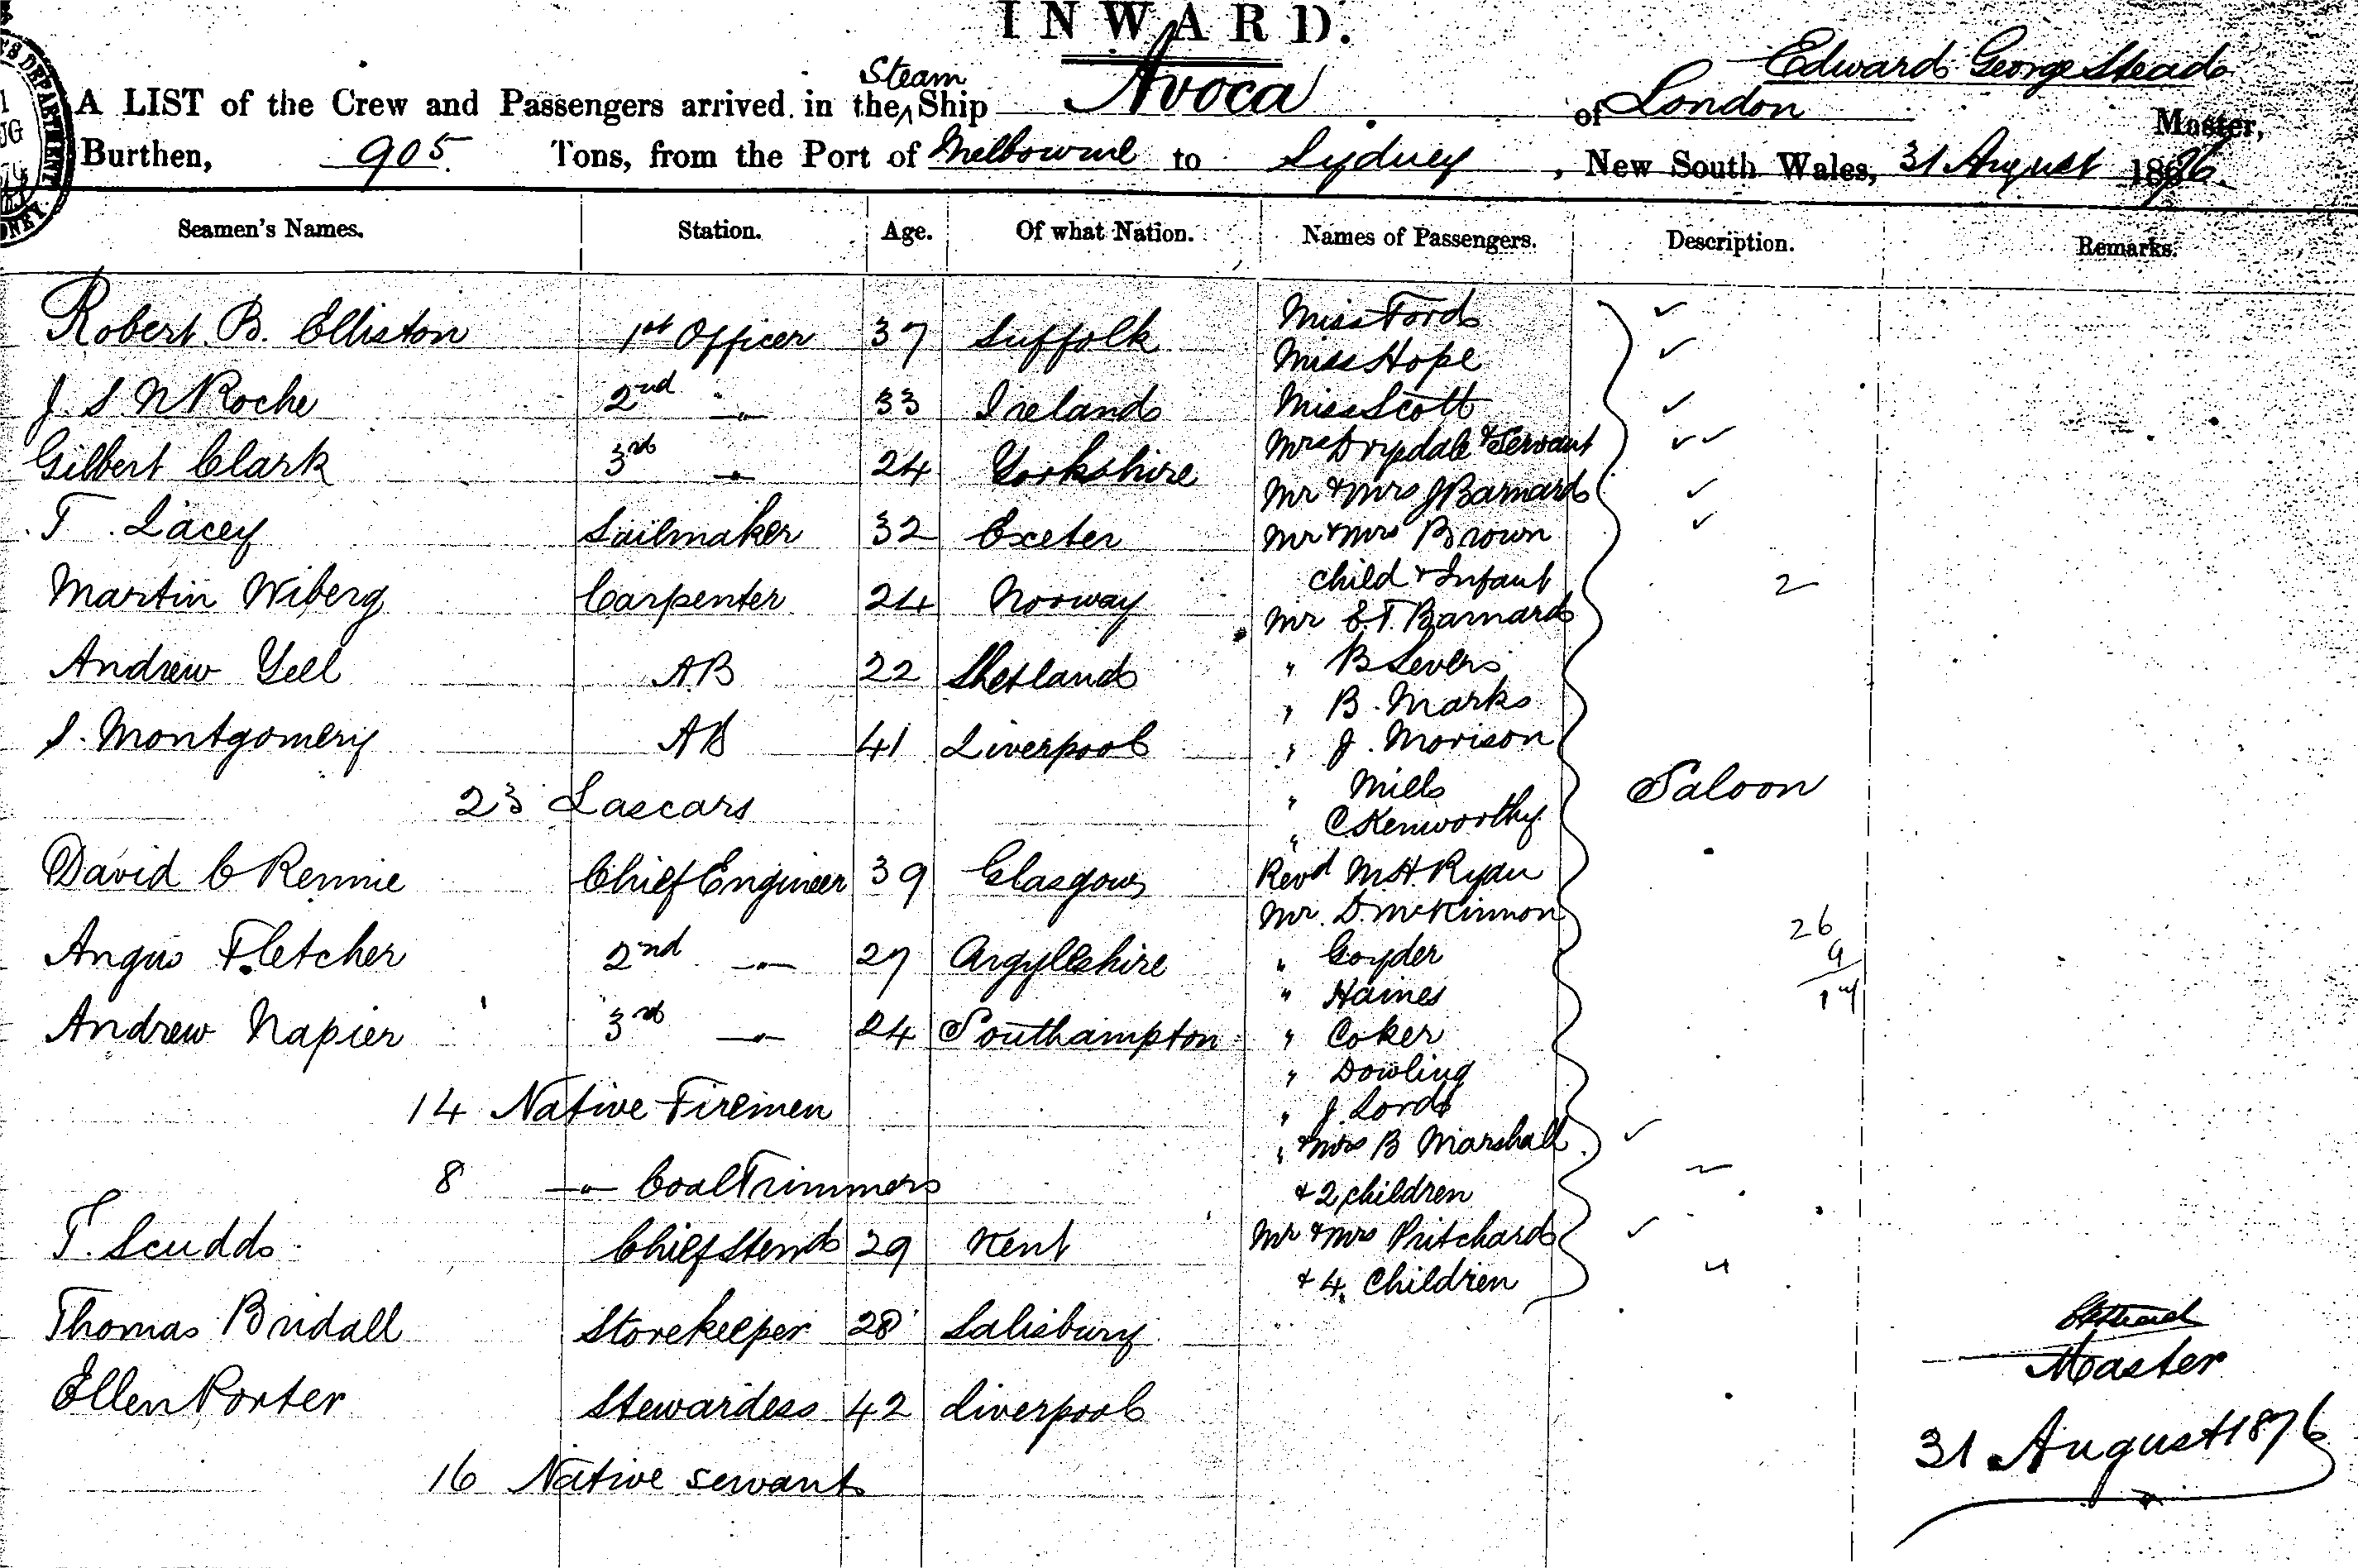 INWARD.
Edward George Stead
A LIST of the Crew and Passengers arrived in the Steam Ship Avoca of London Master,
Burthen, 905 Tons, from the Port of Melbourne to Sydney, New South Wales, 31 August 1876.
Seamen's Names. Station. Age. Of what Nation. Names of Passengers. Description. Remarks.
Miss Ford ✓
Robert B. Elliston 1st Officer 37 Suffolk
Miss Hope ✓
J. S. N Roche 2nd " 33 Ireland Miss Scott ✓
Mrs Drysdale & Servant ✓✓
Gilbert Clark 3rd " 24 Yorkshire
Mr & Mrs J Barnard ✓
T. Lacey Sailmaker 32 Exeter Mr & Mrs Brown ✓
child & Infant 2
Martin Wiberg Carpenter 24 Norway
Mr E. T. Barnard
Andrew Yell AB 22 Shetland " B Levers
" B. Marks
S. Montgomery AB 41 Liverpool " J. Morison
23 Lascars " Mills Saloon
" C Kenworthy
David C Rennie Chief Engineer 39 Glasgow Revd M. H. Ryan
Mr. D. McKinnon 26
Angus Fletcher 2nd " 27 Argyllshire " Goyder 9
" Haines 17
Andrew Napier 3rd " 24 Southampton " Coker
" Dowling
14 Native Firemen " J. Lord
" & Mrs B Marshall ✓
8 " Coal Trimmers & 2 children
T. Scudd Chief Stewd 29 Kent Mr & Mrs Pritchard ✓
& 4 Children 4
Thomas Bridall Storekeeper 28 Salisbury
EGStead
Master
Ellen Porter Stewardess 42 Liverpool
31 August 1876
16 Native servants